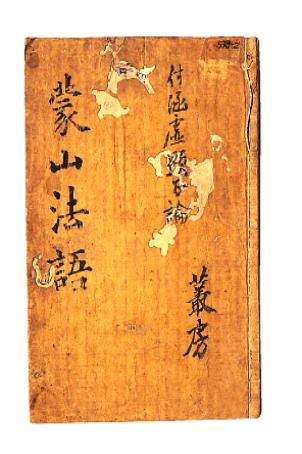 付涵虛顯正論
叢房
蒙山法語